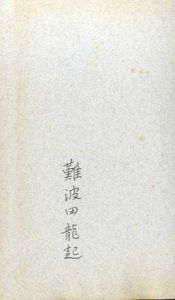 難波田龍起